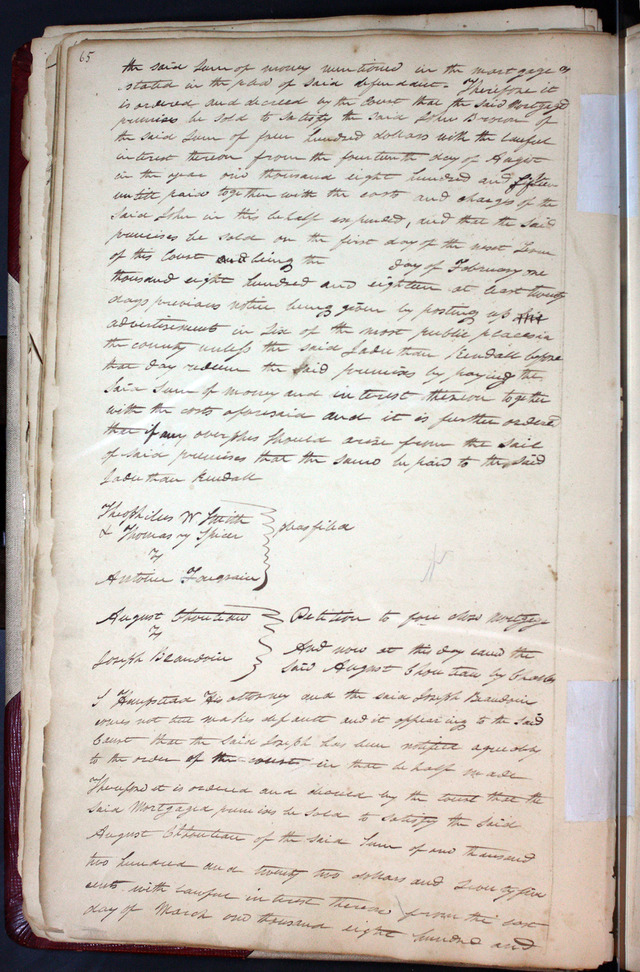 65
the said sum of money mentioned in the mortgage &
stated in the plea of said defendant. Therefore it
is ordered and decreed by the Court that the said Mortgaged
premises be sold to satisfy the said John Brown of
the said sum of four hundred dollars with the lawful
interest thereon from the fourteenth day of August
in the year one thousand eight hundred and fifteen
untill paid together with the costs and charges of the
said John in this behalf expended, and that the said
premises be sold on the first day of the next Term
of this Court and being the day of February one
thousand eight hundred and eighteen at least twenty
days previous notice being given by posting up
advertisements in six of the most public places in
the county unless the said Jaduthan Kendall before
that day redeem the said premises by paying the
said sum of money and interest thereon together
with the costs aforesaid and it is further ordered
that if any overplus should arise from the sail
of said premises that the same be paid to the said
Jaduthan Kendall
Theophilus W Smith
& Thomas Spicer
plea filed
Antoine
August Chouteau
Petition to fore close Mortgage
Joseph Beaudoin
And now at this day came the
said August Chouteau by Charles
S Hempstead His attorney and the said Joseph Beaudoin
comes not but makes default and it appearing to the said
Court that the said Joseph has been notified agreeably
to the order of the court in that behalf made
Therefore it is ordered and decreed by the court that the
said Mortgaged premises be sold to satisfy the said
August Chouteau of the said sum of one thousand
two hundred and twenty two dollars and twenty five
cents with lawful interest thereon from the
day of March one thousand eight hundred and